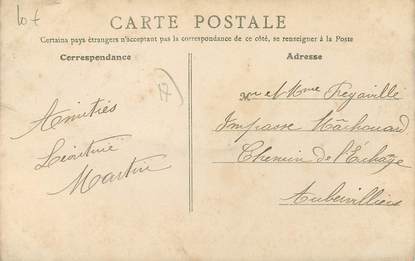 lot
CARTE POSTALE
Certains pays étrangers n'acceptant pas la correspondance de ce côté, se renseigner à la Poste
Correspondance
Adresse
Amitiés
Léontine
Martin
Mr et Mme
Impasse
Chemin de l'Echange
Aubervilliers